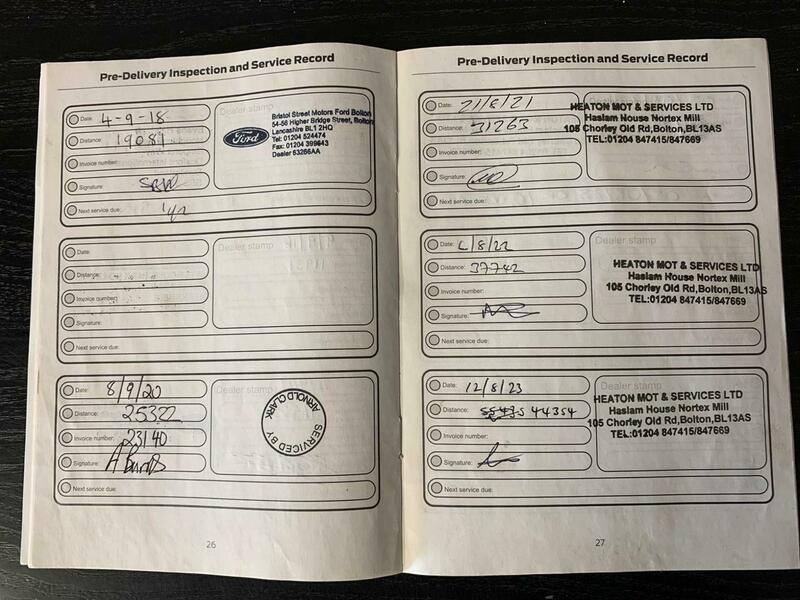 Pre-Delivery Inspection and Service Record
Date: 4-9-18
Distance: 19081
Invoice number:
Signature:
Next service due:
Dealer stamp
Ford
Bristol Street Motors Ford Bolton
54-56 Higher Bridge Street, Bolton
Lancashire BL1 2HQ
Tel: 01204 524474
Fax: 01204 399643
Dealer 63266AA
Date:
Distance:
Invoice number:
Signature:
Next service due:
Dealer stamp
Date: 8/9/20
Distance: 25322
Invoice number: 23140
Signature:
Next service due:
Dealer stamp
SERVICED BY
ARNOLD CLARK
26
Pre-Delivery Inspection and Service Record
Date: 21/8/21
Distance: 31263
Invoice number:
Signature:
Next service due:
HEATON MOT & SERVICES LTD
Haslam House Nortex Mill
105 Chorley Old Rd,Bolton,BL13AS
TEL:01204 847415/847669
Date: /8/22
Distance: 37742
Invoice number:
Signature:
Next service due:
Dealer stamp
HEATON MOT & SERVICES LTD
Haslam House Nortex Mill
105 Chorley Old Rd,Bolton,BL13AS
TEL:01204 847415/847669
Date: 12/8/23
Distance: 44354
Invoice number:
Signature:
Next service due:
Dealer stamp
HEATON MOT & SERVICES LTD
Haslam House Nortex Mill
105 Chorley Old Rd,Bolton,BL13AS
TEL:01204 847415/847669
27